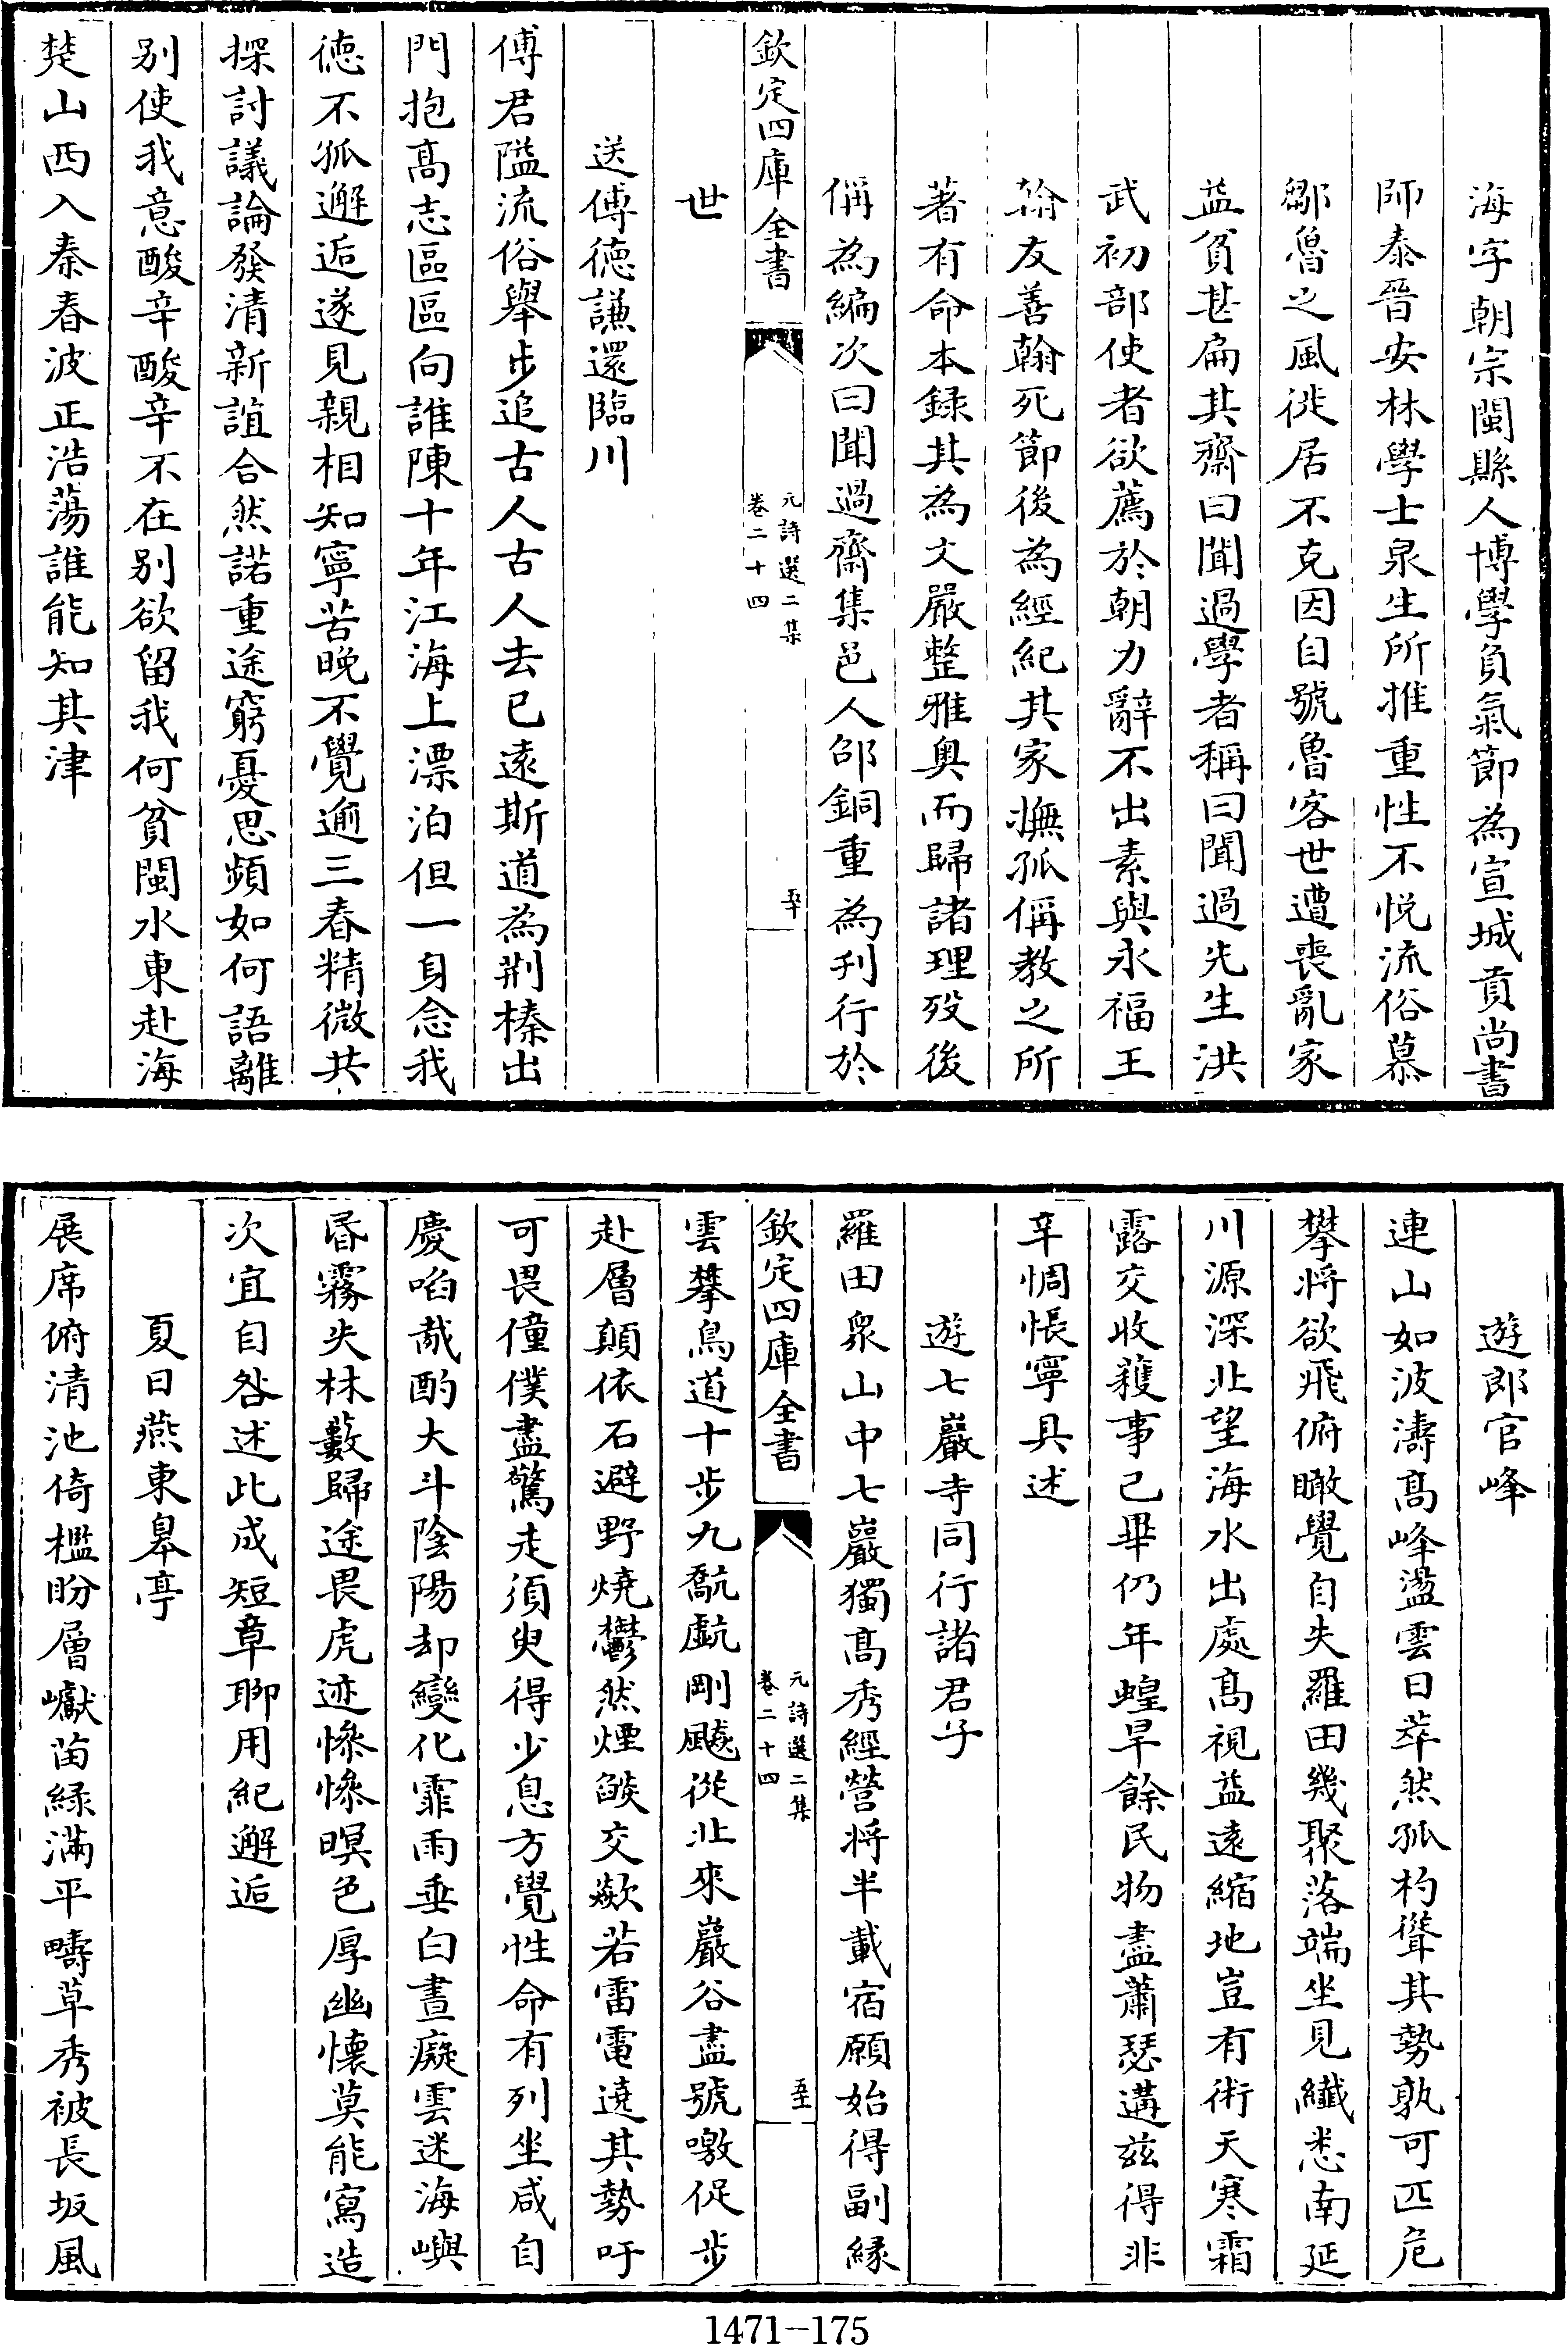 海字朝宗閩縣人博學負氣節為宣城貢尚書
師泰晉安林學士泉生所推重性不悅流俗慕
鄒魯之風徙居不克因自號魯客世遭喪亂家
益貧甚扁其齋曰聞過學者稱曰聞過先生洪
武初部使者欲薦於朝力辭不出素與永福王
翰友善翰死節後為經紀其家撫孤偁教之所
著有命本録其為文嚴整雅奥而歸諸理殁後
偁為編次曰聞過齋集邑人邵銅重為刋行於
欽定四庫全書
元詩選二集
卷二十四
五十
世
送傅徳謙還臨川
傅君隘流俗舉步追古人古人去已逺斯道為荆榛出
門抱髙志區區向誰陳十年江海上漂泊但一身念我
徳不孤邂逅遂見親相知寧苦晚不覺逾三春精微共
探討議論發清新誼合然諾重途窮憂思頻如何語離
别使我意酸辛酸辛不在别欲留我何貧閩水東赴海
楚山西入秦春波正浩蕩誰能知其津
遊郎官峰
連山如波濤髙峰盪雲日萃然孤杓聳其勢孰可匹危
攀将欲飛俯瞰覺自失羅田幾聚落端坐見纎悉南延
川源深北望海水出處髙視益逺縮地豈有術天寒霜
露交收穫事已畢仍年蝗旱餘民物盡蕭瑟遘兹得非
辛惆悵寧具述
遊七巖寺同行諸君子
羅田衆山中七巖獨髙秀經營将半載宿願始得副縁
欽定四庫全書
元詩選二集
卷二十四
五十一
雲攀鳥道十步九㱂㱂剛飈從北來巖谷盡號噭促步
赴層顛依石避野燒鬱然煙燄交歘若雷電遶其勢吁
可畏僮僕盡驚走須臾得少息方覺性命有列坐咸自
慶㗖胾酌大斗陰陽却變化霏雨垂白晝癡雲迷海嶼
昏霧失林藪歸途畏虎迹慘慘暝色厚幽懐莫能寫造
次宜自咎述此成短章聊用紀邂逅
夏日燕東皋亭
展席俯清池倚檻盼層巘苗緑滿平疇草秀被長坂風
1471-175